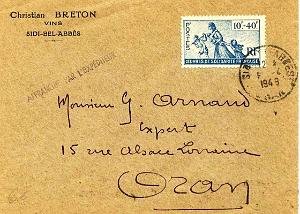 Christian BRETON
VINS
SIDI-BEL-ABBÈS
AFFRANCHI PAR L'EXPÉDITEUR
10F+40F
RF
ŒUVRES DE SOLIDARITÉ FRANÇAISE
Monsieur G. Arnaud
Expert
15 rue Alsace Lorraine
Oran